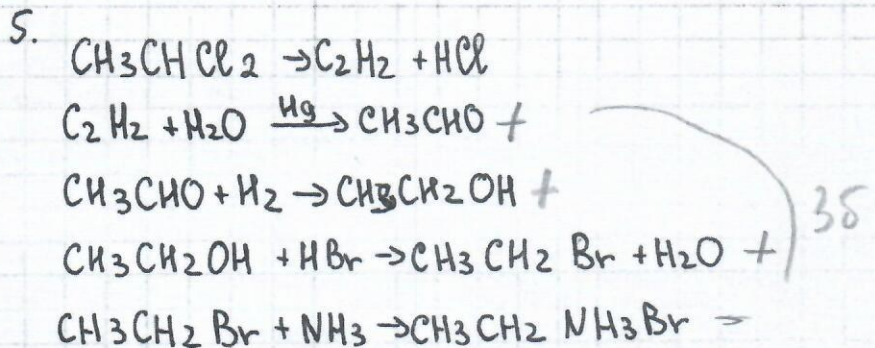 5.
CH3CHCl2 → C2H2 + HCl
C2H2 + H2O Hg→ CH3CHO +
CH3CHO + H2 → CH3CH2OH +
CH3CH2OH + HBr → CH3CH2Br + H2O +
3б
CH3CH2Br + NH3 → CH3CH2NH3Br −